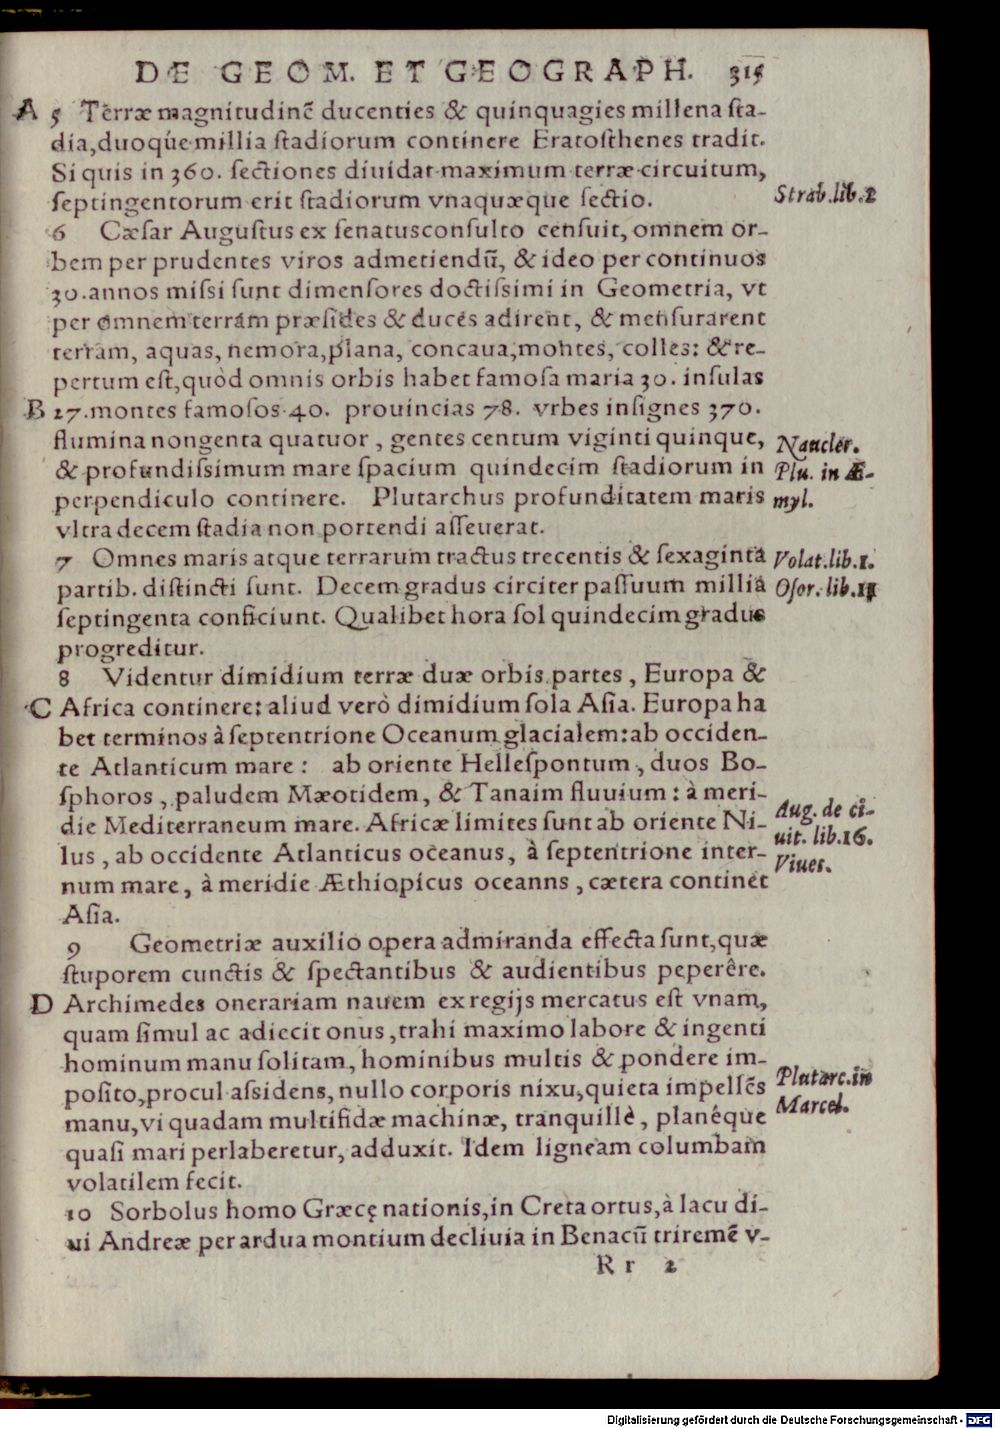 DE GEOM. ET GEOGRAPH. 315
A 5 Terræ magnitudinẽ ducenties & quinquagies millena ſta-
dia, duoque millia ſtadiorum continere Eratoſthenes tradit.
Si quis in 360. ſectiones diuidat maximum terræ circuitum,
ſeptingentorum erit ſtadiorum vnaquæque ſectio.
Strab. lib. 2
6 Cæſar Auguſtus ex ſenatusconſulto cenſuit, omnem or-
bem per prudentes viros admetiendũ, & ideo per continuos
30. annos miſſi ſunt dimenſores doctiſſimi in Geometria, vt
per omnem terram præſides & duces adirent, & menſurarent
terram, aquas, nemora, plana, concaua, montes, colles: & re-
pertum eſt, quòd omnis orbis habet famoſa maria 30. inſulas
B 27. montes famoſos 40. prouincias 78. vrbes inſignes 370.
flumina nongenta quatuor, gentes centum viginti quinque,
& profundiſſimum mare ſpacium quindecim ſtadiorum in
perpendiculo continere. Plutarchus profunditatem maris
vltra decem ſtadia non portendi aſſeuerat.
Naucler.
Plu. in Æ-
myl.
7 Omnes maris atque terrarum tractus trecentis & ſexaginta
partib. diſtincti ſunt. Decem gradus circiter paſſuum millia
ſeptingenta conficiunt. Qualibet hora ſol quindecim gradus
progreditur.
Volat. lib. 1.
Oſor. lib. 11
8 Videntur dimidium terræ duæ orbis partes, Europa &
C Africa continere: aliud verò dimidium ſola Aſia. Europa ha
bet terminos à ſeptentrione Oceanum glacialem: ab occiden-
te Atlanticum mare: ab oriente Helleſpontum, duos Bo-
ſphoros, paludem Mæotidem, & Tanaim fluuium: à meri-
die Mediterraneum mare. Africæ limites ſunt ab oriente Ni-
lus, ab occidente Atlanticus oceanus, à ſeptentrione inter-
num mare, à meridie Æthiopicus oceanns, cætera continet
Aſia.
Aug. de ci-
uit. lib. 16.
Viues.
9 Geometriæ auxilio opera admiranda effecta ſunt, quæ
ſtuporem cunctis & ſpectantibus & audientibus peperêre.
D Archimedes onerariam nauem ex regijs mercatus eſt vnam,
quam ſimul ac adiecit onus, trahi maximo labore & ingenti
hominum manu ſolitam, hominibus multis & pondere im-
poſito, procul aſsidens, nullo corporis nixu, quieta impellẽs
manu, vi quadam multifidæ machinæ, tranquillè, planéque
quaſi mari perlaberetur, adduxit. Idem ligneam columbam
volatilem fecit.
Plutarc. in
Marcel.
10 Sorbolus homo Græcę nationis, in Creta ortus, à lacu di-
ui Andreæ per ardua montium decliuia in Benacũ triremẽ v-
R r 2
Digitalisierung gefördert durch die Deutsche Forschungsgemeinschaft - DFG